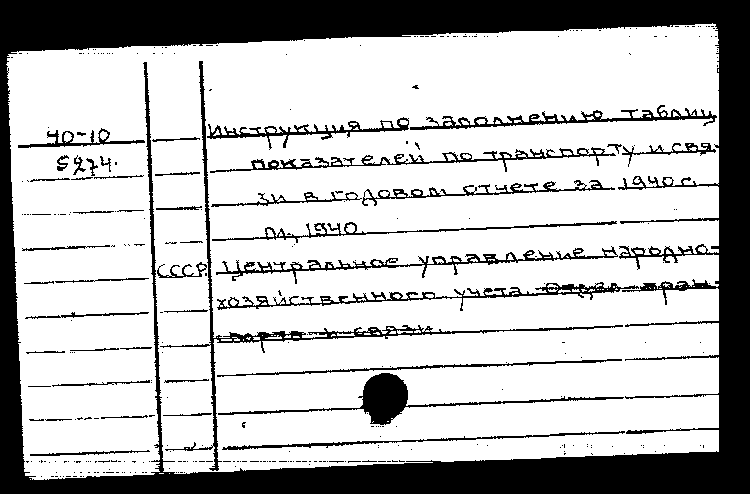 40-10
5274.
Инструкция по заполнению таблиц
показателей по транспорту и свя-
зи в годовом отчете за 1940 г.
М., 1940.
СССР. Центральное управление народно-
хозяйственного учета. Отдел тран-
спорта и связи.